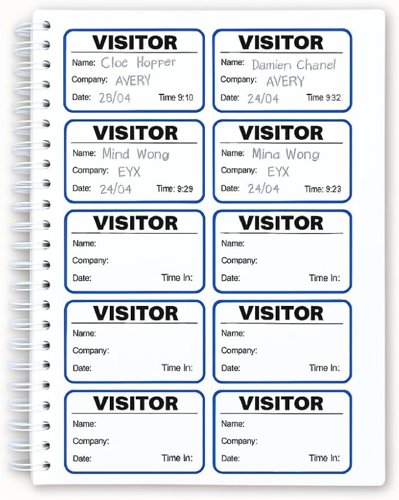 VISITOR
Name: Cloe Hopper
Company: AVERY
Date: 28/04 Time 9:10
VISITOR
Name: Damien Chanel
Company: AVERY
Date: 24/04 Time 9:32
VISITOR
Name: Mind Wong
Company: EYX
Date: 24/04 Time: 9:29
VISITOR
Name: Mina Wong
Company: EYX
Date: 24/04 Time: 9:23
VISITOR
Name:
Company:
Date: Time In:
VISITOR
Name:
Company:
Date: Time In:
VISITOR
Name:
Company:
Date: Time In:
VISITOR
Name:
Company:
Date: Time In:
VISITOR
Name:
Company:
Date: Time In:
VISITOR
Name:
Company:
Date: Time In: